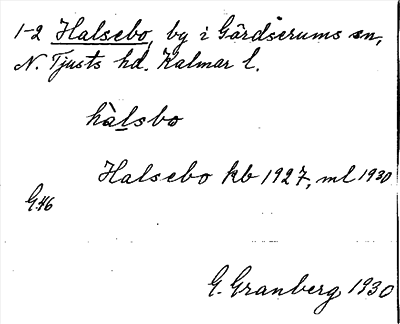 1-2 Halsebo, by i Gärdserums sn,
N. Tjusts hd. Kalmar l.
hàlsbo
Halsebo kb 1927, ml 1930
G46
G. Granberg 1930